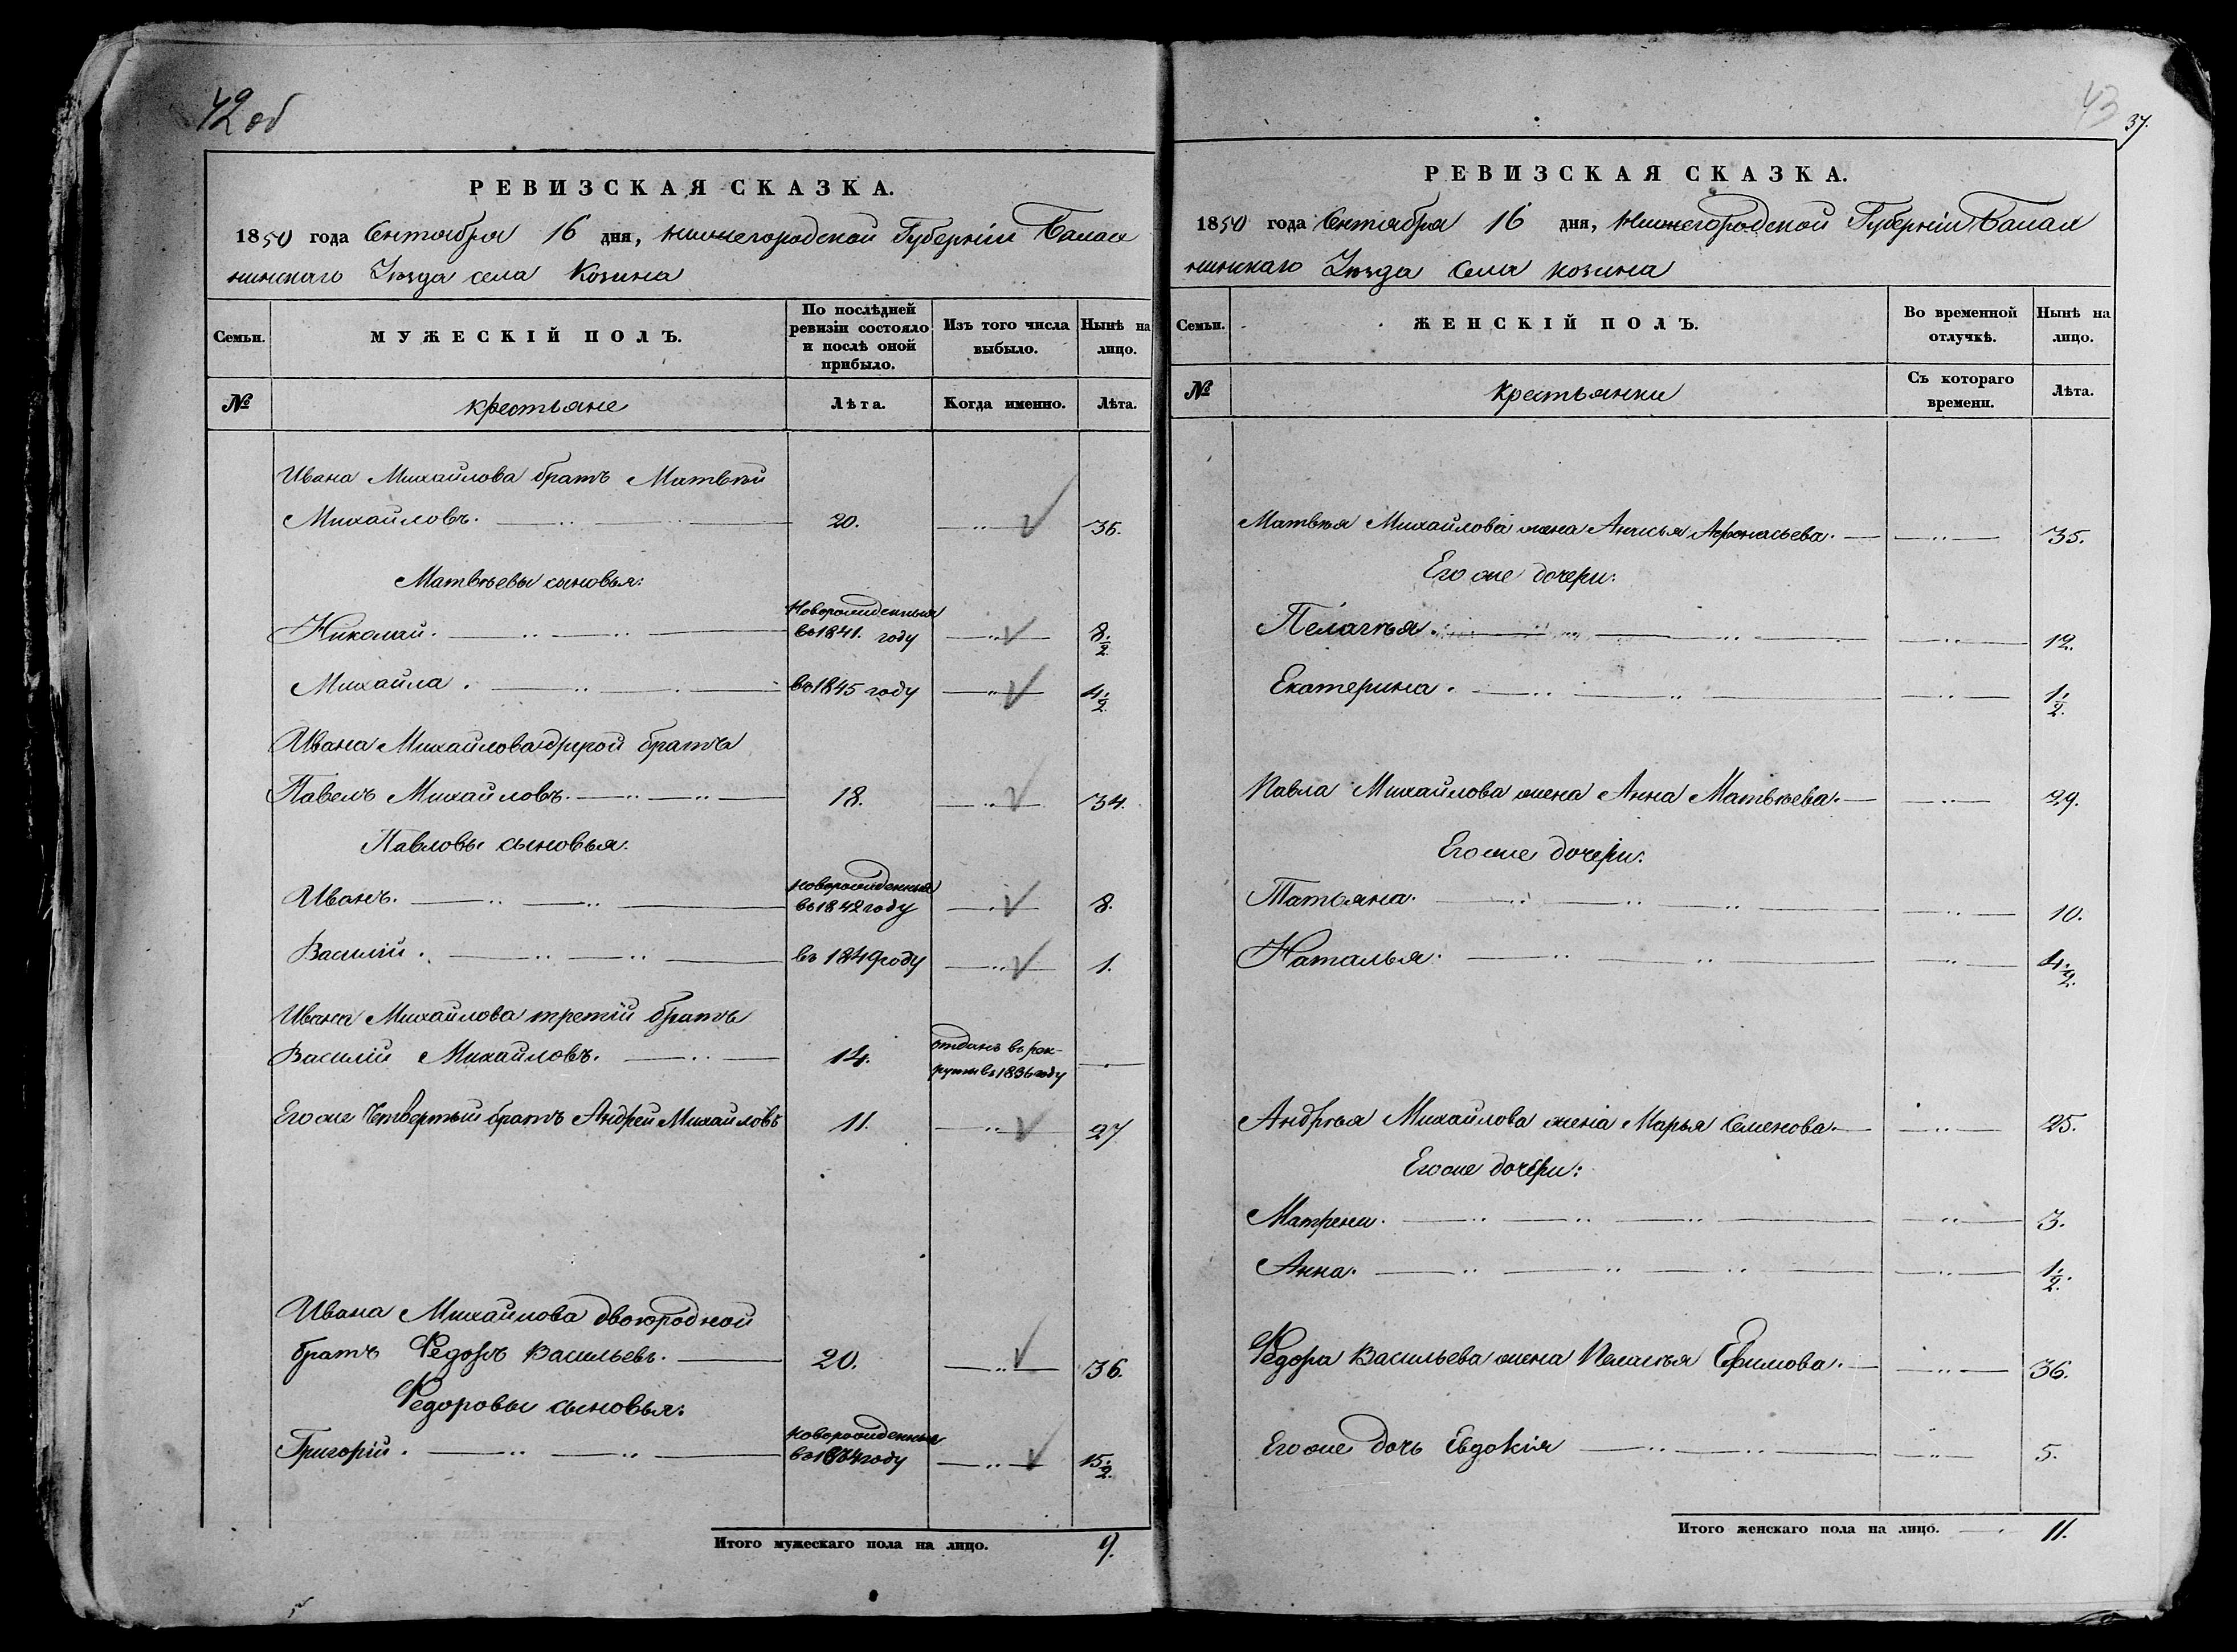 42 об
РЕВИЗСКАЯ СКАЗКА.
1850 года Сентября 16 дня, Нижегородской Губерніи Балах
нинскаго Уѣзда села Козина
Семьи.
МУЖЕСКІЙ ПОЛЪ.
По послѣдней
ревизіи состояло
и послѣ оной
прибыло.
Изъ того числа
выбыло.
Нынѣ на
лицо.
№
крестьяне
Лѣта.
Когда именно.
Лѣта.
Ивана Михайлова братъ Матвѣй
Михайловъ. 20. 36.
Матвѣевы сыновья:
Новорожденныя
Николай. въ 1841. году 8. 1/2
Михайла. въ 1845 году 4. 1/2
Ивана Михайлова другой братъ
Павелъ Михайловъ. 18. 34.
Павловы сыновья.
новорожденныя
Иванъ. въ 1842 году 8.
Василій. въ 1849 году 1.
Ивана Михайлова третій братъ
Василій Михайловъ. 14. отданъ въ рек-
руты въ 1836 году
Его же Четвертый братъ Андрей Михайловъ 11. 27
Ивана Михайлова двоюродной
братъ Федоръ Васильевъ. 20. 36.
Федоровы сыновья.
новорожденныя
Григорій. въ 1834 году 15. 1/2
Итого мужескаго пола на лицо. 9.
43
37.
РЕВИЗСКАЯ СКАЗКА.
1850 года Сентября 16 дня, Нижегородской Губерніи Балах
нинскаго Уѣзда села Козина
Семьи.
ЖЕНСКІЙ ПОЛЪ.
Во временной
отлучкѣ.
Нынѣ на
лицо.
№
крестьянки
Съ котораго
времени.
Лѣта.
Матвѣя Михайлова жена Анисья Афонасьева. 35.
Его же дочери:
Пелагѣя. 12.
Екатерина. 1. 1/2
Павла Михайлова жена Анна Матвѣева. 29.
Его же дочери:
Татьяна. 10.
Наталья. 4. 1/2
Андрѣя Михайлова жена Марья Семенова. 25.
Его же дочери:
Матрена. 3.
Анна. 1. 1/2
Федора Васильева жена Пелагѣя Ефимова. 36.
Его же дочь Евдокія 5.
Итого женскаго пола на лицо. 11.